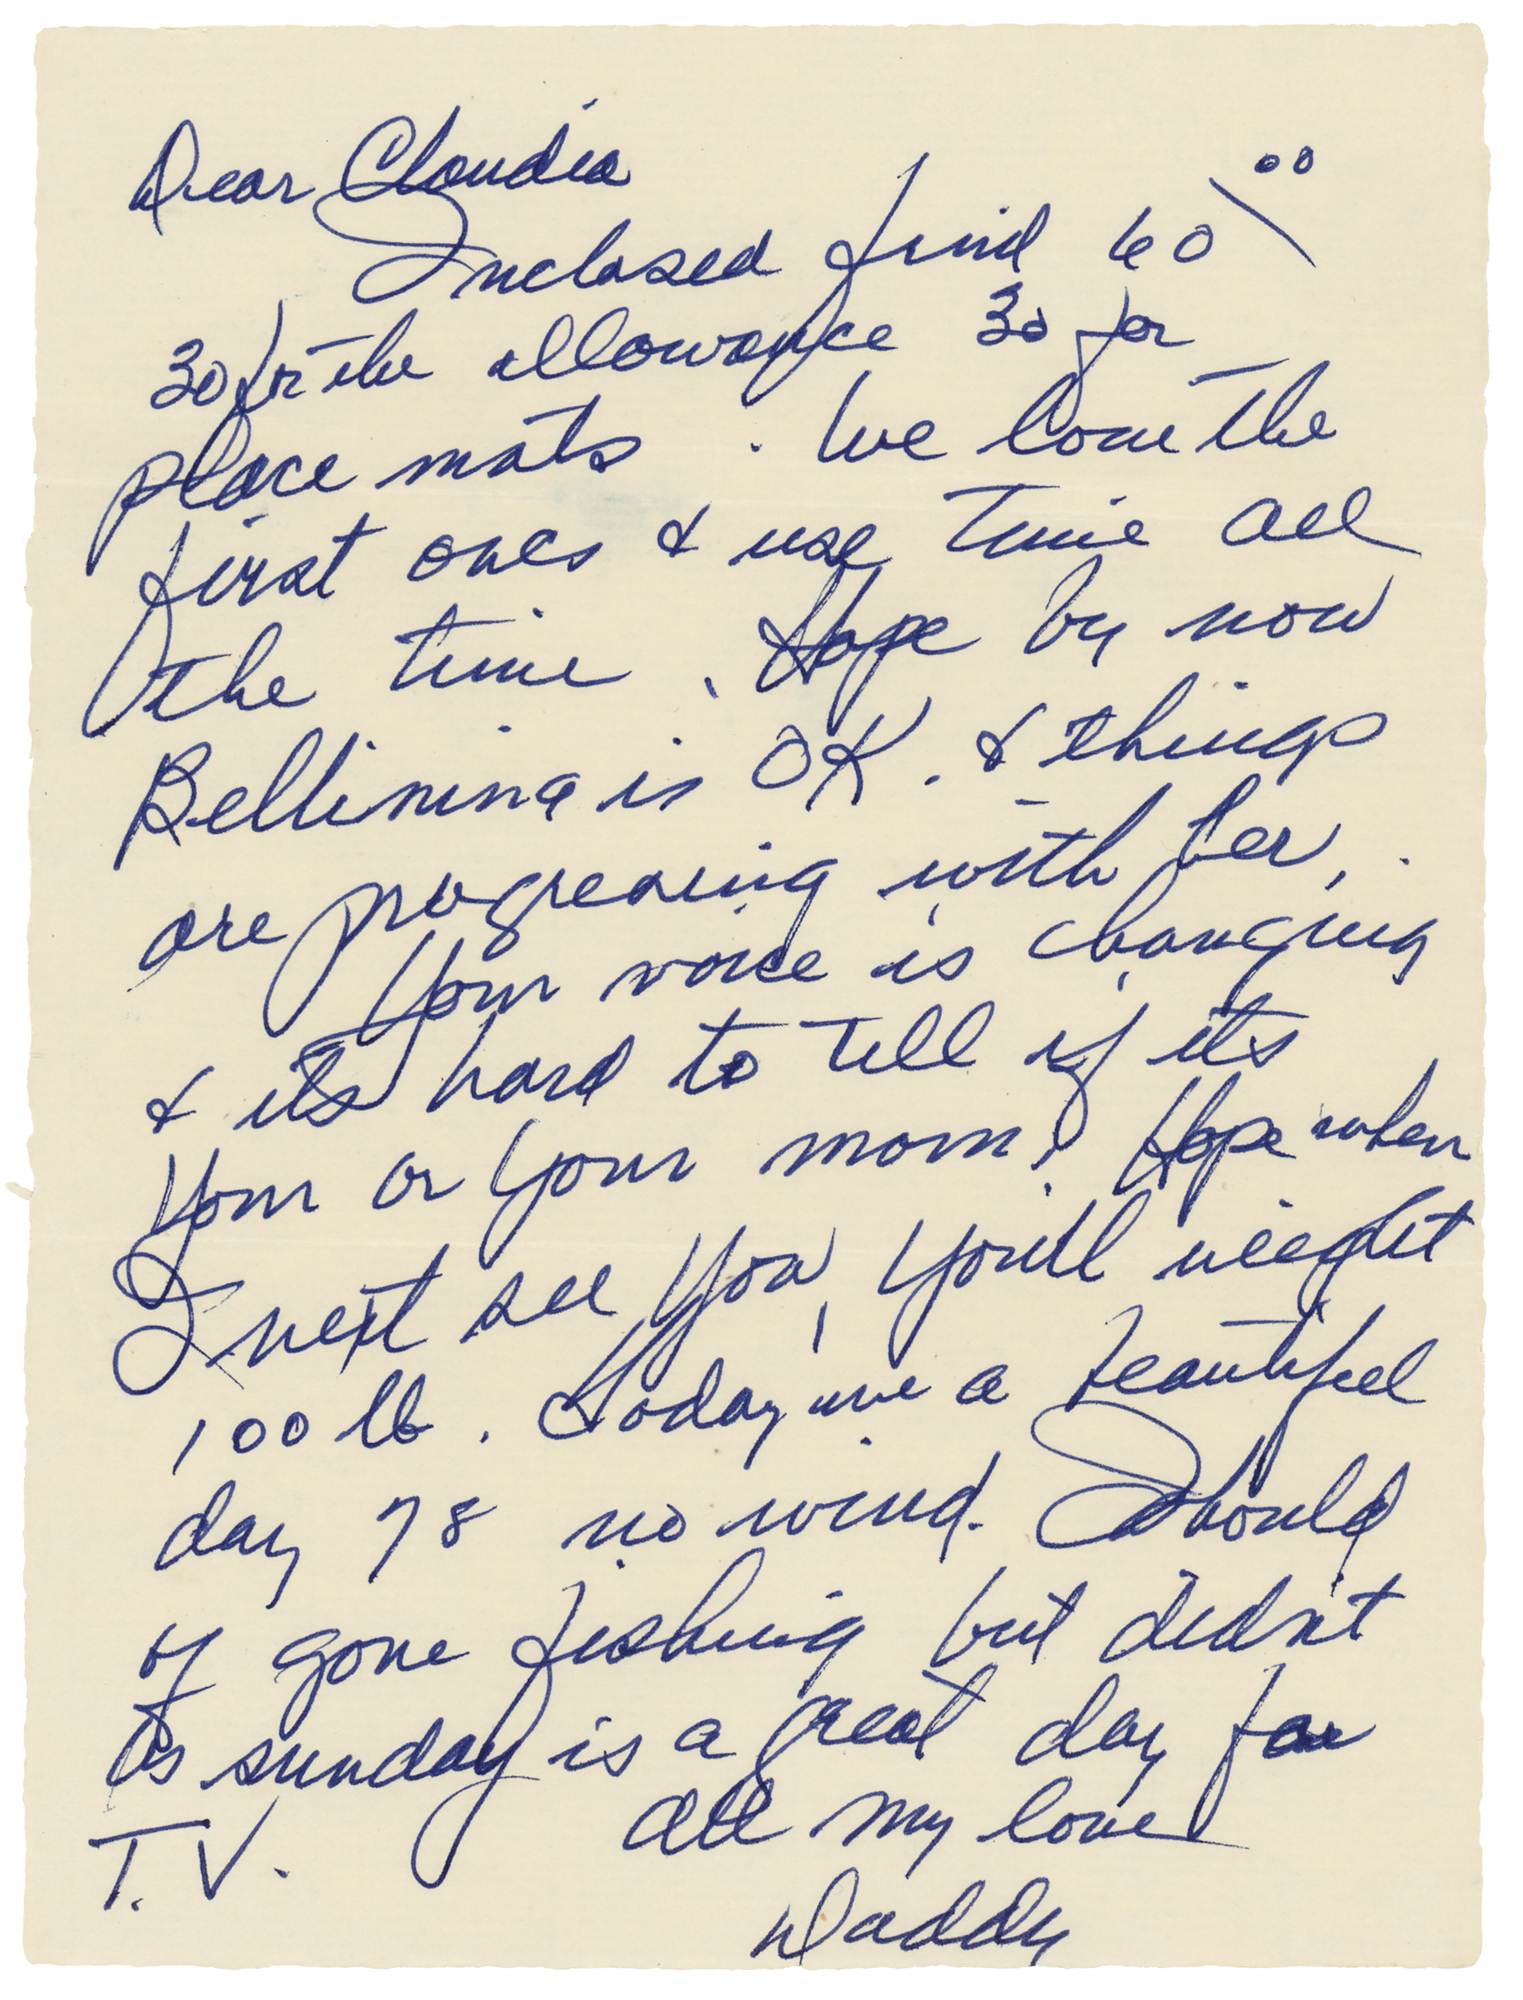 Dear Claudia
Inclosed find 60\00
30 for the allowance 30 for
place mats. We love the
first ones & use time all
the time. Hope by now
Bellinina is OK. & things
are progressing with her.
Your voice is changing
& its hard to tell if its
Your or Your mom. Hope when
I next see You, You'll weight
100 lb. Today was a beautiful
day 78 no wind. Should
of gone fishing but didn't
As sunday is a great day for
T.V. All my love
Daddy